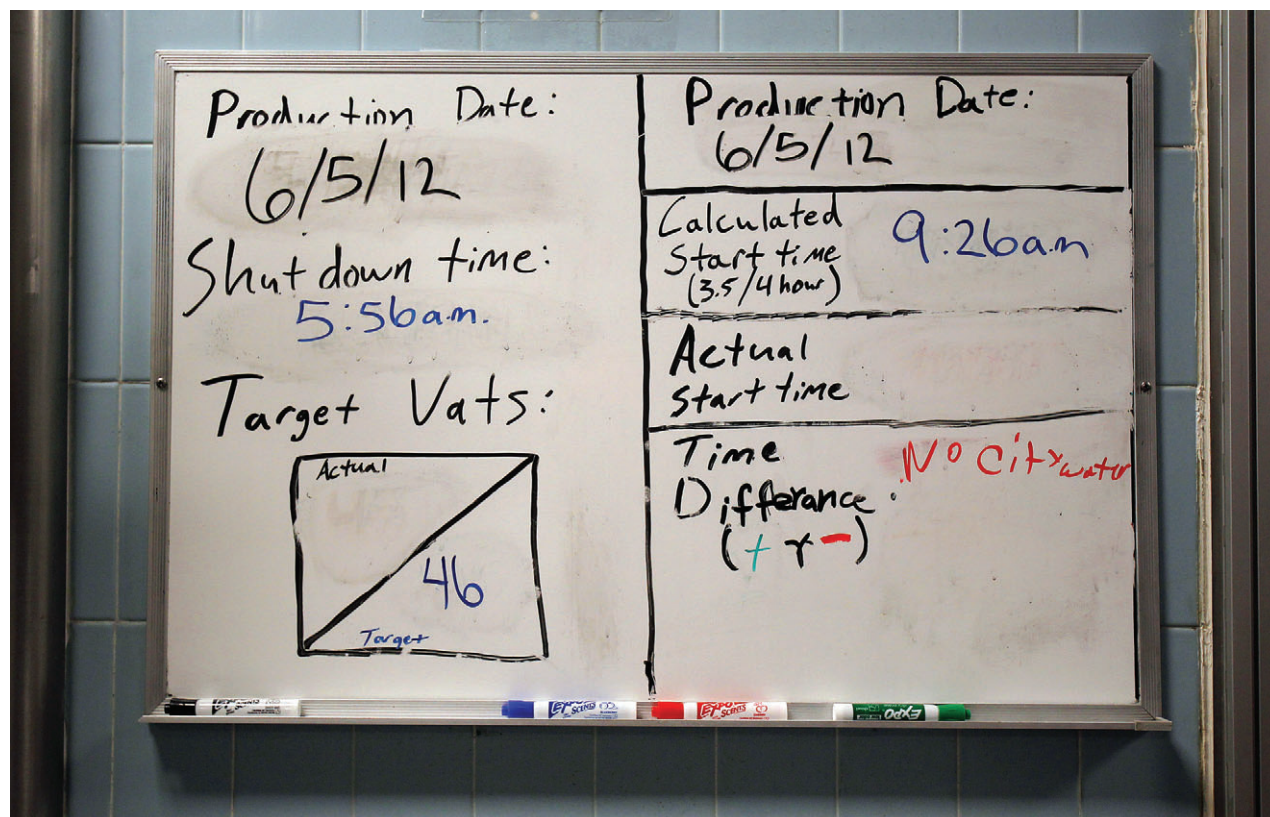 Production Date:
6/5/12
Shutdown time:
5:56 a.m.
Target Vats:
Actual
46
Target
Production Date:
6/5/12
Calculated
Start time
(3.5/4 hour)
9:26 a.m
Actual
Start time
Time
Difference:
(+ r -)
No City water
EXPO
EXPO
EXPO
EXPO